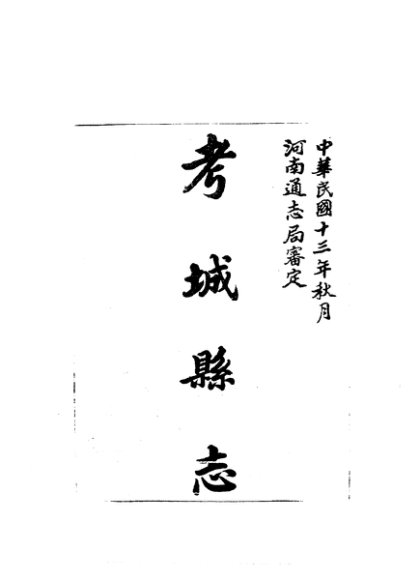 中華民國十三年秋月
河南通志局審定
考城縣志